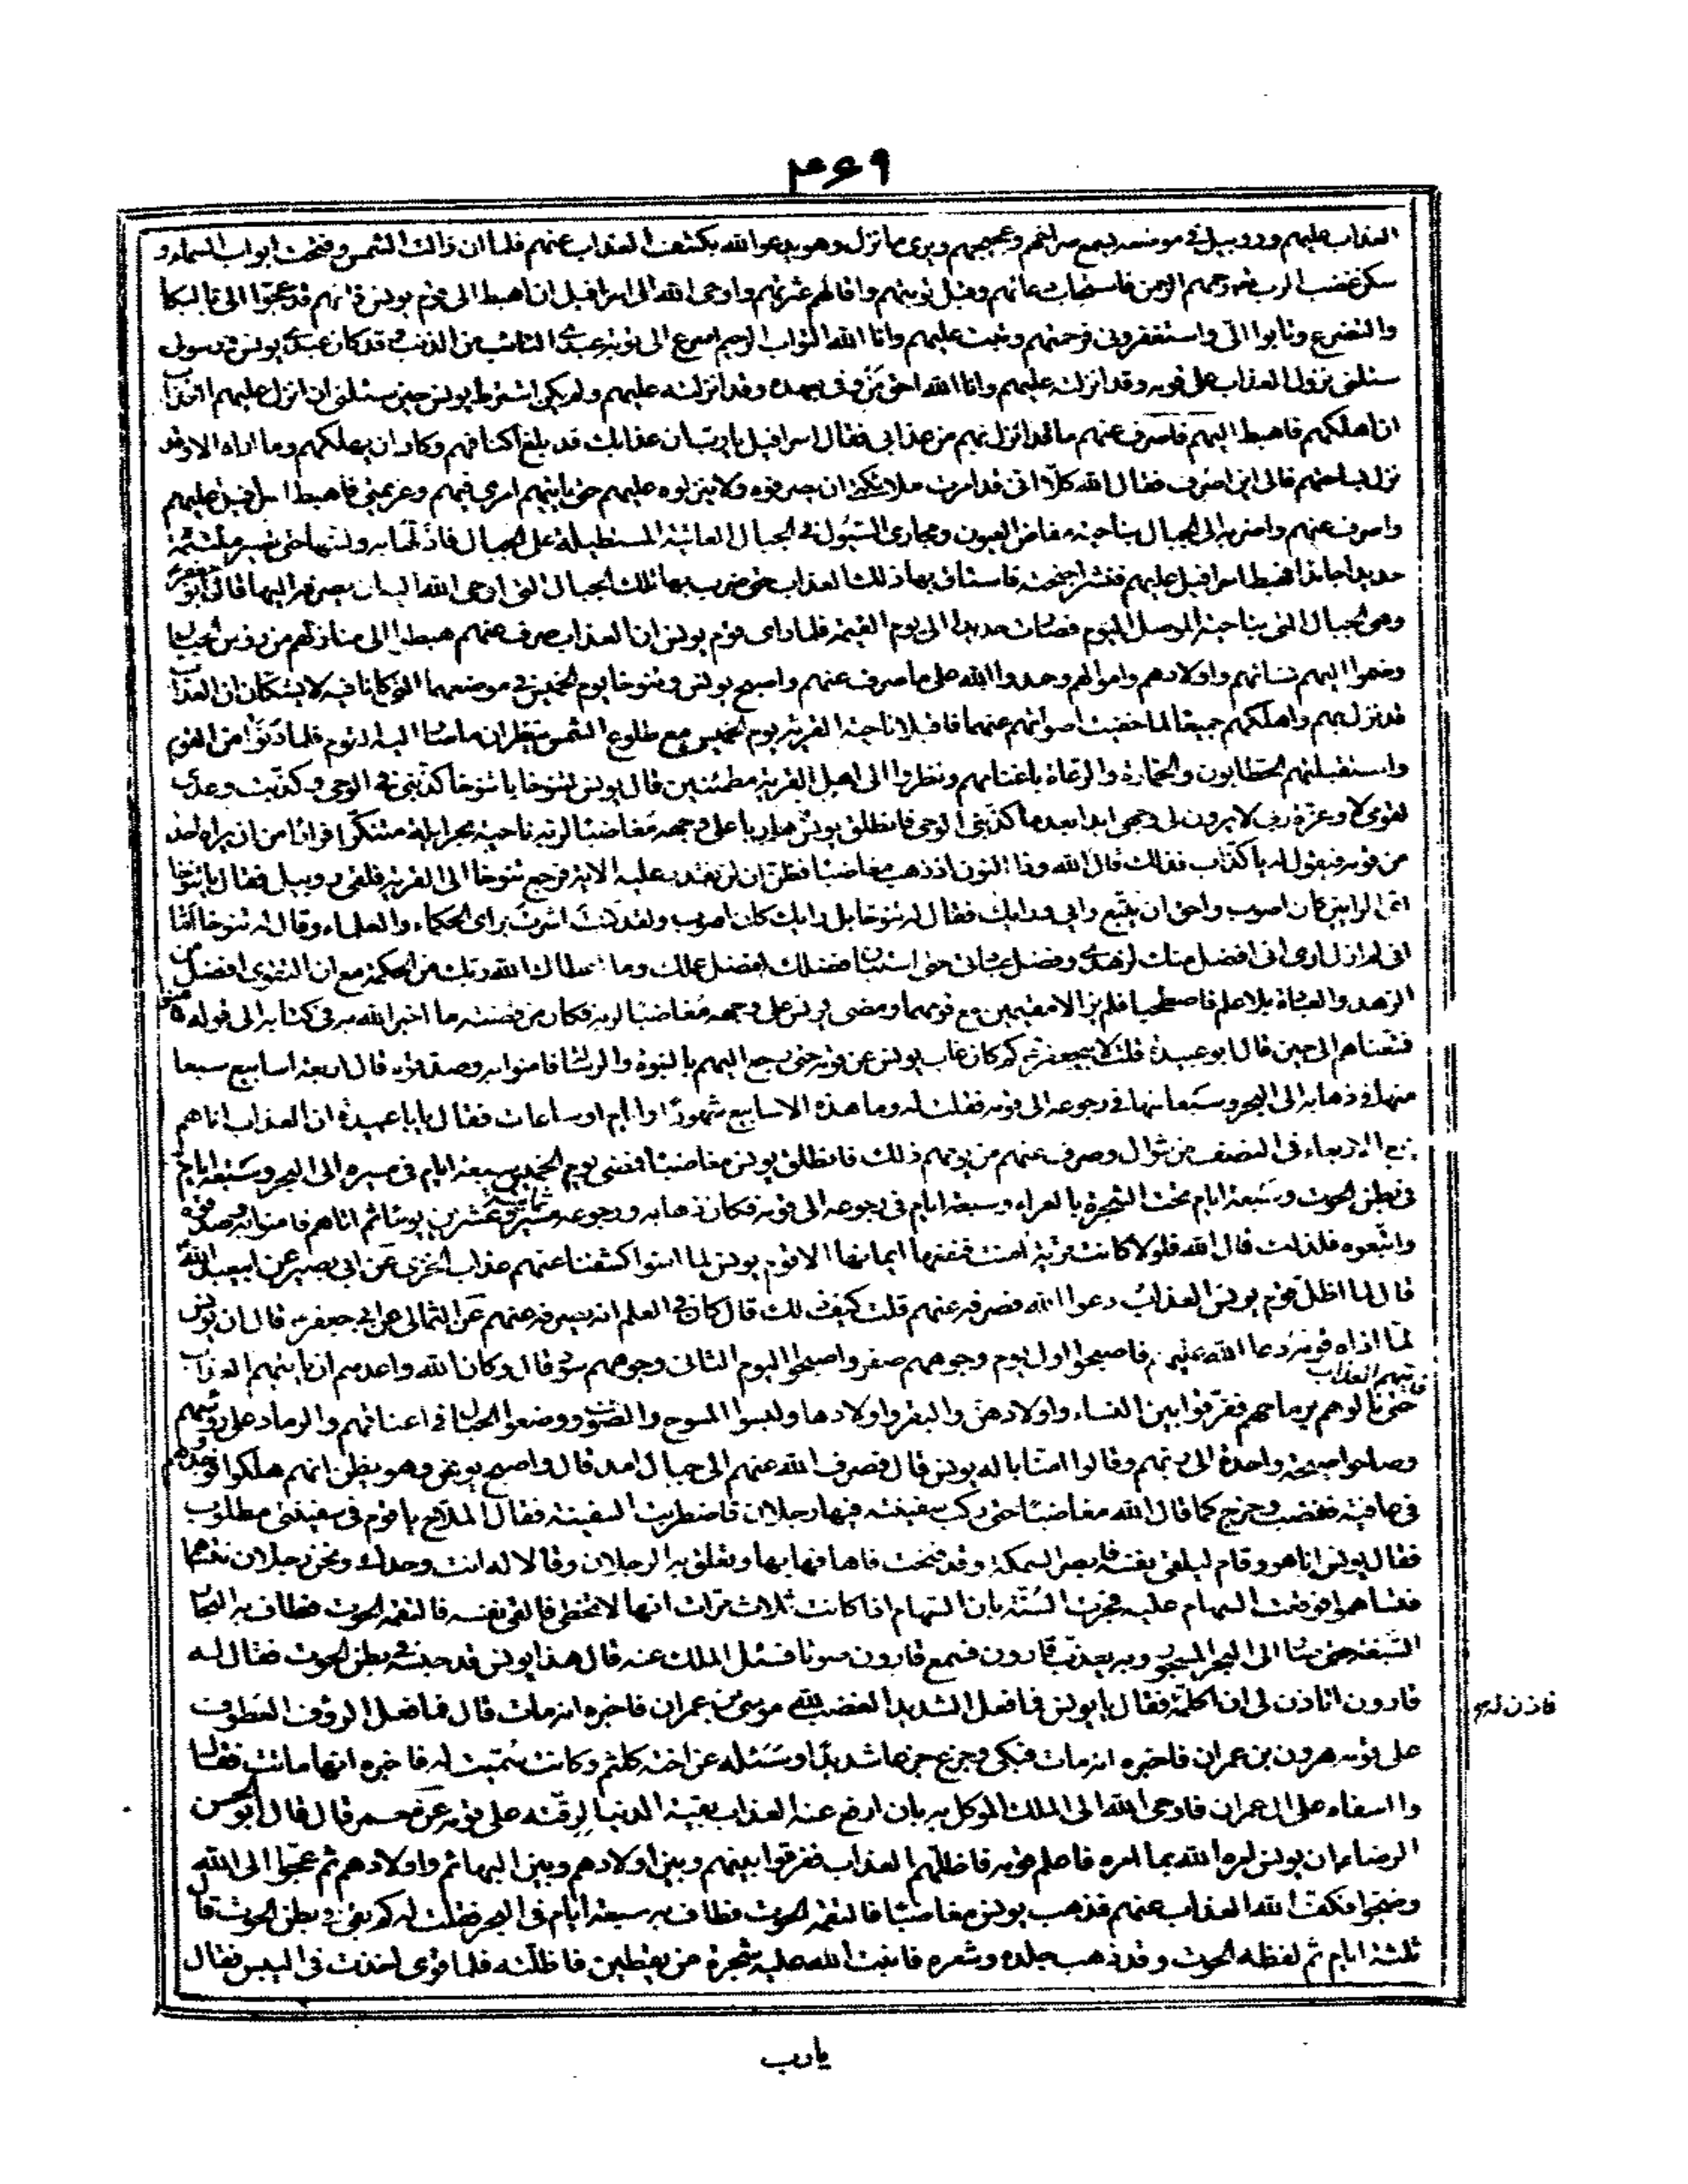 ۴۶۹
العذاب عليهم وروبيل في موضعه يسمع صراخهم وعجيجهم ويرى ما نزل وهو يدعو الله بكشف العذاب عنهم فلما ان زالت الشمس وفتحت ابواب السماء و
سكن غضب الرب رحمهم الرحمن فاستجاب دعائهم وقبل توبتهم واقالهم عثرتهم واوحى الله الى اسرافيل ان اهبط الى قوم يونس فانهم قد عجّوا الىّ بالبكا
والتضرع وتابوا الىّ واستغفرونى فرحمتهم وتبت عليهم وانا الله التواب الرحيم اسرع الى توبة عبدى التائب من الذنب وقد كان عبدى يونس ورسولى
سئلنى نزول العذاب على قومه وقد انزلته عليهم وانا الله احق من وفى بعهده وقد انزلته عليهم ولم يكن اشترط يونس حين سئلنى ان انزل عليهم العذاب
ان اهلكهم فاهبط اليهم فاصرف عنهم ما قد انزل بهم من عذابى فقال اسرافيل يا رب ان عذابك قد بلغ اكتافهم وكاد ان يهلكهم وما اراه الا وقد
نزل بساحتهم فالى اين اصرفه فقال الله كلّا انى قد امرت ملائكتى ان يصرفوه ولا ينزلوه عليهم حتى ياتيهم امرى فيهم وعزيمتى فاهبط يا اسرافيل عليهم
واصرف عنهم واضرب به الى الجبال بناحية مفاض العيون ومجارى السيول فى الجبال العاتية المستطيلة على الجبال فاذلّها به ولينها حتى تصير ملتئمة
حديدا جامدا فهبط اسرافيل عليهم فنشر اجنحته فاستاق بها ذلك العذاب حتى ضرب بها تلك الجبال التى اوحى الله اليه ان يصرفه اليها قال ابو جعفر
وهى الجبال التى بناحية الموصل اليوم فصارت حديدا الى يوم القيمة فلما راى قوم يونس ان العذاب صرف عنهم هبطوا الى منازلهم من رؤس الجبال
وضموا اليهم نسائهم واولادهم واموالهم وحمدوا الله على ما صرف عنهم واصبح يونس وتنوخا يوم الخميس فى موضعهما الذى كانا فيه لا يشكان ان العذاب
قد نزل بهم واهلكهم جميعا لما خفيت اصواتهم عنهما فاقبلا ناحية القرية يوم الخميس مع طلوع الشمس ينظران ما صار اليه القوم فلما دنوا من القوم
واستقبلتهم الحطابون والحمارة والرعاة باغنامهم ونظروا الى اهل القرية مطمئنين قال يونس لتنوخا يا تنوخا كذّبنى الوحى وكذبت وعدى
لقومى لا وعزة ربى لا يرون لى وجهى ابدا بعد ما كذّبنى الوحى فانطلق يونس هاربا على وجهه مغاضبا لربه ناحية بحر ايلة متنكرا فرارا من ان يراه احد
من قومه فيقول له يا كذّاب فذلك قال الله وذا النون اذ ذهب مغاضبا فظن ان لن نقدر عليه الاية فرجع تنوخا الى القرية فلقى روبيل فقال يا تنوخا
اىّ الرايين كان اصوب واحق ان يتبع رايى او رايك فقال له تنوخا بل رايك كان اصوب ولقد كنت اشرت براى الحكماء والعلماء وقال له تنوخا اما
انى لم ازل ارى انى افضل منك لزهدى وفضل عبادتى حتى استبان فضلك لفضل علمك وما اعطاك الله ربك من الحكمة مع ان التقوى افضل من
الزهد والعبادة بلا علم فاصطحبا فلم يزالا مقيمين مع قومهما ومضى يونس على وجهه مغاضبا لربه فكان من قصته ما اخبر الله به فى كتابه الى قوله فامنوا
فمتعناهم الى حين قال ابو عبيدة قلت لابى جعفر كم كان غاب يونس عن قومه حتى رجع اليهم بالنبوة والرسالة فامنوا به وصدقوه قال اربعة اسابيع سبعا
منها فى ذهابه الى البحر وسبعا منها فى رجوعه الى قومه فقلت له وما هذه الاسابيع شهورا او ايام او ساعات فقال يابا عبيدة ان العذاب اتاهم
يوم الاربعاء فى النصف من شوال وصرف عنهم من يومهم ذلك فانطلق يونس مغاضبا فمضى يوم الخميس سبعة ايام فى مسيره الى البحر وسبعة ايام
فى بطن الحوت وسبعة ايام تحت الشجرة بالعراء وسبعة ايام فى رجوعه الى قومه فكان ذهابه ورجوعه ثمانية وعشرين يوما ثم اتاهم فامنوا به وصدقوه
واتبعوه فلذلك قال الله فلولا كانت قرية امنت فنفعها ايمانها الا قوم يونس لما امنوا كشفنا عنهم عذاب الخزى عن ابى بصير عن ابى عبد الله
قال لما اظلّ قوم يونس العذاب دعوا الله فصرفه عنهم قلت كيف ذلك قال كان فى العلم انه يصرفه عنهم عن الثمالى عن ابى جعفر قال ان يونس
لمّا اذاه قومه دعا الله عليهم فاصبحوا اول يوم وجوههم صفر واصبحوا اليوم الثانى وجوههم سود قال وكان الله واعدهم ان ياتيهم العذاب
فاتيهم العذاب
حتى نالوهم برماحهم ففرّقوا بين النساء واولادهن والبقر واولادها ولبسوا المسوح والصوف ووضعوا الحبال فى اعناقهم والرماد على رؤسهم
وصاحوا صيحة واحدة الى ربهم وقالوا امنّا باله يونس قال فصرف الله عنهم الى جبال امد قال واصبح يونس وهو يظن انهم هلكوا فوجدهم
فى عافية فغضب وخرج كما قال الله مغاضبا حتى ركب سفينة فيها رجلان فاضطربت السفينة فقال الملّاح يا قوم فى سفينتى مطلوب
فقال يونس انا هو وقام ليلقى نفسه فابصر السمكة وقد فتحت فاها فهابها وتعلّق به الرجلان وقالا له انت وحدك ونحن رجلان
فساهموا فوقعت السهام عليه فجرت السّنّة بان السهام اذا كانت ثلاث مرّات انها لا تخطى فالقى نفسه فالتقمه الحوت فطاف به البحار
السبعة حتى صار الى البحر المسجور وبه يعذّب قارون فسمع قارون صوتا فسئل الملك عنه قال هذا يونس قد حبسه فى بطن الحوت فقال له
قارون اتاذن لى ان اكلّمه فقال يا يونس فما فعل الشديد الغضب لله موسى بن عمران فاخبره انه مات قال فما فعل الرؤف العطوف
فاذن له
على قومه هرون بن عمران فاخبره انه مات فبكى وجزع جزعا شديدا وسئله عن اخته كلثم وكانت سمّيت له فاخبره انها ماتت فقال
وا اسفاه على ال عمران فاوحى الله الى الملك الموكل به بان ارفع عنه العذاب بقية الدنيا لرقّته على قومه عن معمر قال قال ابو الحسن
الرضا ان يونس امره الله بما امره فاعلم قومه فاظلّهم العذاب ففرقوا بينهم وبين اولادهم وبين البهائم واولادهم ثم عجّوا الى الله
وضجّوا فكف الله العذاب عنهم فذهب يونس مغاضبا فالتقمه الحوت فطاف به سبعة ايام فى البحر فقلت له كم بقى فى بطن الحوت قال
ثلثة ايام ثم لفظه الحوت وقد ذهب جلده وشعره فانبت الله عليه شجرة من يقطين فاظلّته فلما قوى اخذت فى اليبس فقال
يا رب